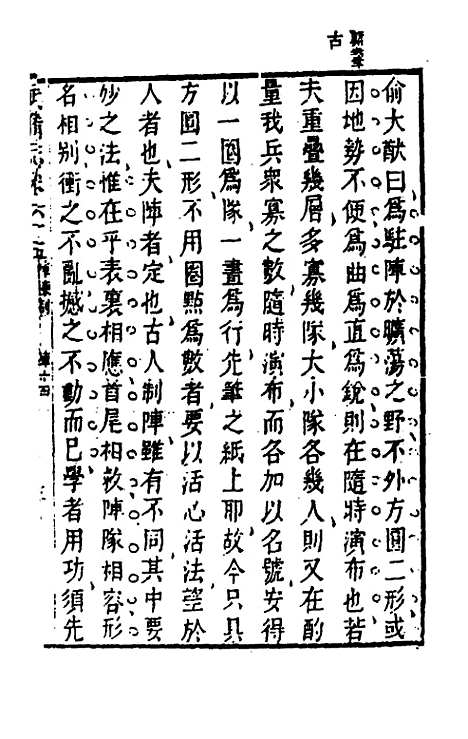 俞大猷曰爲駐陣於曠蕩之野不外方圓二形或
因地勢不便爲曲爲直爲銳則在隨時演布也若
夫重疊幾層多寡幾隊大小隊各幾人則又在酌
量我兵衆寡之數隨時演布而各加以名號安得
以一圈爲隊一畫爲行先筆之紙上耶故今只具
方圓二形不用圈點爲數者要以活心活法望於
人者也夫陣者定也古人制陣雖有不同其中要
妙之法惟在乎表裏相應首尾相救陣隊相容形
名相别衝之不亂撼之不動而已學者用功須先
武備志卷六十之五 陣練制 陣六四